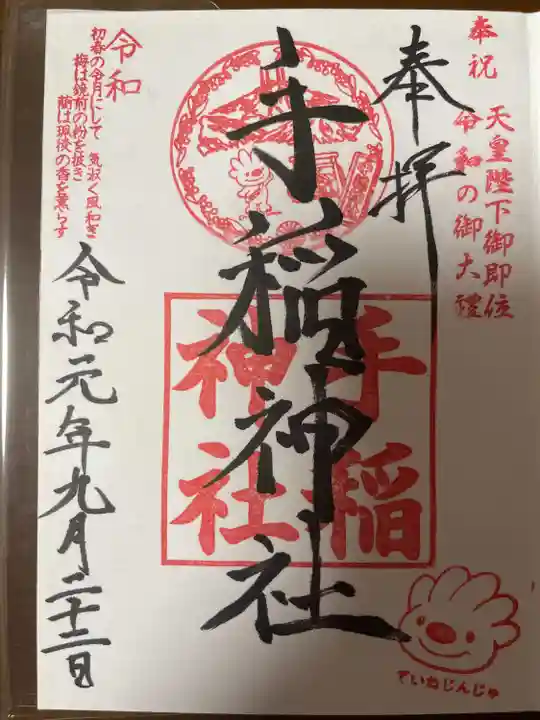 奉祝
天皇陛下御即位
令和の御大禮
奉拝
手稲神社
手稲
神社
令和
初春の令月にして
気淑く風和ぎ
梅は鏡前の粉を披き
蘭は珮後の香を薫らす
令和元年九月二十二日
ていねじんじゃ